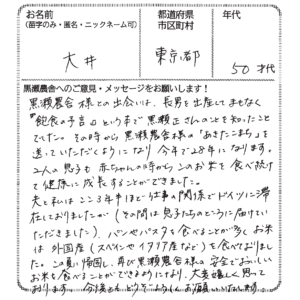 お名前
(苗字のみ・匿名・ニックネーム可)
都道府県
市区町村
年代
大井
東京都
50才代
黒瀬農舎へのご意見・メッセージをお願いします!
黒瀬農舎様との出会いは、長男を出産してまもなく
"飽食の予言"という本で黒瀬正さんのことを知ったこと
でした。その時から黒瀬農舎様の「あきたこまち」を
送っていただくようになり今年で28年になります。
2人の息子も赤ちゃんの時からこのお米を食べ続け
て健康に成長することができました。
夫と私はここ3年半ほど仕事の関係でドイツに滞
在しておりましたが(その間は息子たちのところに届けてい
ただきました)、パンやパスタを食べることが多くお米
は外国産(スペインやイタリア産など)を食べておりまし
た。この夏に帰国し、再び黒瀬農舎様の安全でおいしい
お米を食べることができるようになり、大変嬉しく思って
おります。今後ともどうぞよろしくお願いいたします。